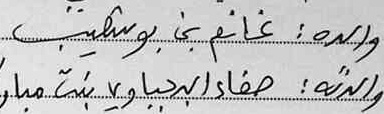 والده : غانم بن بوشكيب
والدته : صفاء البرجباوي بنت مبارك